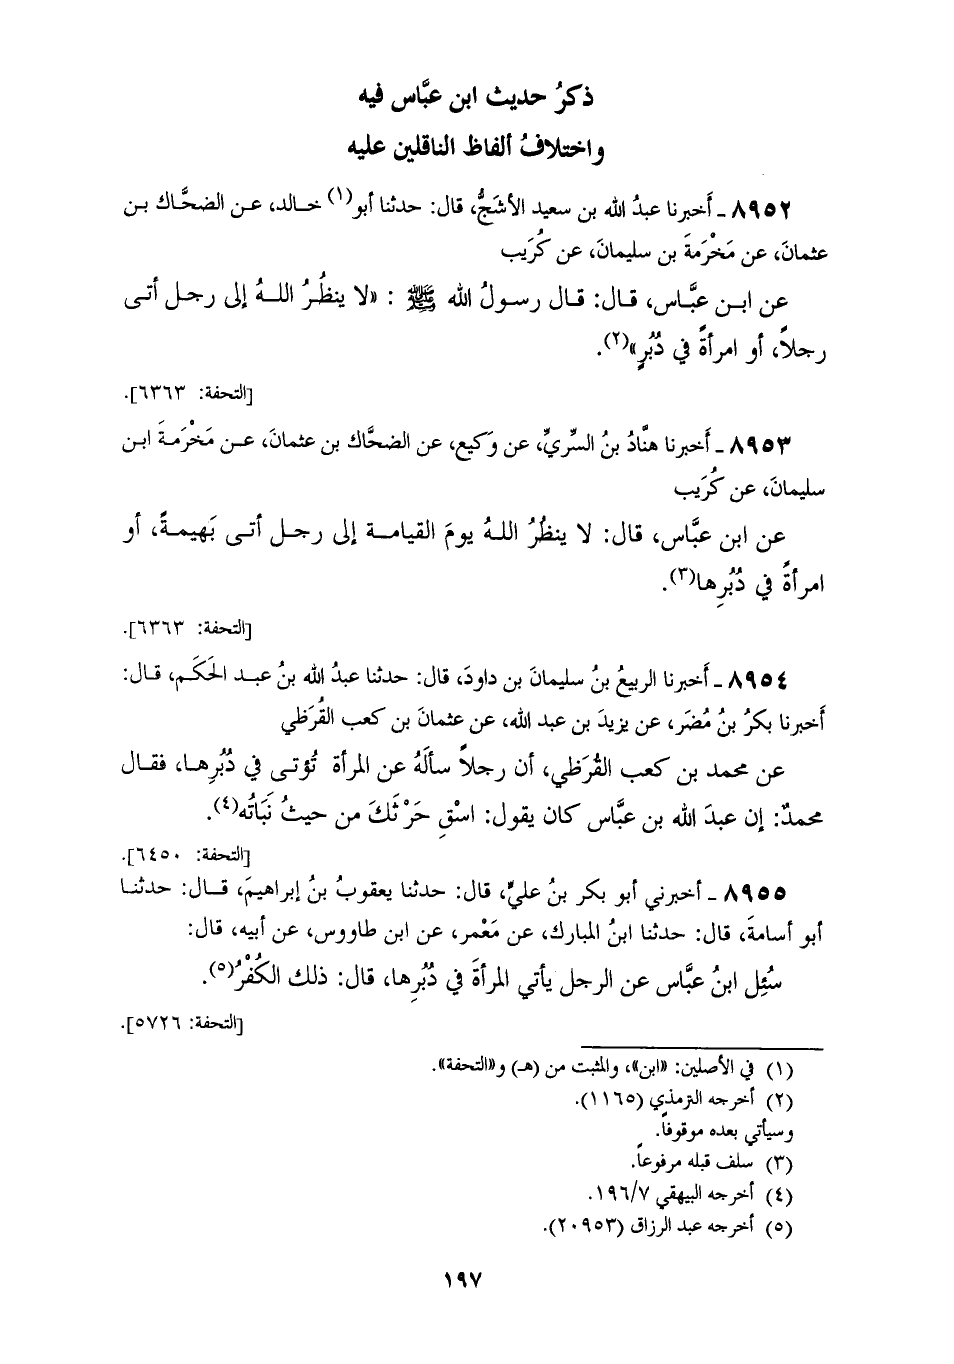 ذكرُ حديث ابن عبَّاس فيه
واختلافُ ألفاظ الناقلين عليه
٨٩٥٢ ـ أَخبرنا عبدُ الله بن سعيد الأشَجُّ، قال: حدثنا أبو(١) خالد، عن الضحَّاك بن
عثمانَ، عن مَخْرَمةَ بن سليمانَ، عن كُرَيب
عن ابن عبَّاس، قال: قال رسولُ الله ﷺ : «لا ينظُرُ اللهُ إلى رجل أتى
رجلاً، أو امرأةً في دُبُرٍ»(٢).
[التحفة: ٦٣٦٣].
٨٩٥٣ ـ أَخبرنا هنَّادُ بنُ السريِّ، عن وَكيع، عن الضحَّاك بن عثمانَ، عن مَخْرَمةَ ابن
سليمانَ، عن كُرَيب
عن ابن عبَّاس، قال: لا ينظُرُ اللهُ يومَ القيامة إلى رجل أتى بَهيمةً، أو
امرأةً في دُبُرِها(٣).
[التحفة: ٦٣٦٣].
٨٩٥٤ ـ أَخبرنا الربيعُ بنُ سليمانَ بن داودَ، قال: حدثنا عبدُ الله بنُ عبد الحَكَم، قال:
أَخبرنا بكرُ بنُ مُضَر، عن يزيدَ بن عبد الله، عن عثمانَ بن كعب القُرَظي
عن محمد بن كعب القُرَظي، أن رجلاً سألَهُ عن المرأة تُؤتى في دُبُرِها، فقال
محمدٌ: إن عبدَ الله بن عبَّاس كان يقول: اسْقِ حَرْثَكَ من حيثُ نَبَاتُه(٤).
[التحفة: ٦٤٥٠].
٨٩٥٥ ـ أخبرني أبو بكر بنُ عليٍّ، قال: حدثنا يعقوبُ بنُ إبراهيمَ، قال: حدثنا
أبو أسامةَ، قال: حدثنا ابنُ المبارك، عن مَعْمر، عن ابن طاووس، عن أبيه، قال:
سُئِل ابنُ عبَّاس عن الرجل يأتي المرأةَ في دُبُرِها، قال: ذلك الكُفْرُ(٥).
[التحفة: ٥٧٢٦].
(١) في الأصلين: «ابن»، والمثبت من (هـ) و«التحفة».
(٢) أخرجه الترمذي (١١٦٥).
وسيأتي بعده موقوفاً.
(٣) سلف قبله مرفوعاً.
(٤) أخرجه البيهقي ١٩٦/٧.
(٥) أخرجه عبد الرزاق (٢٠٩٥٣).
١٩٧